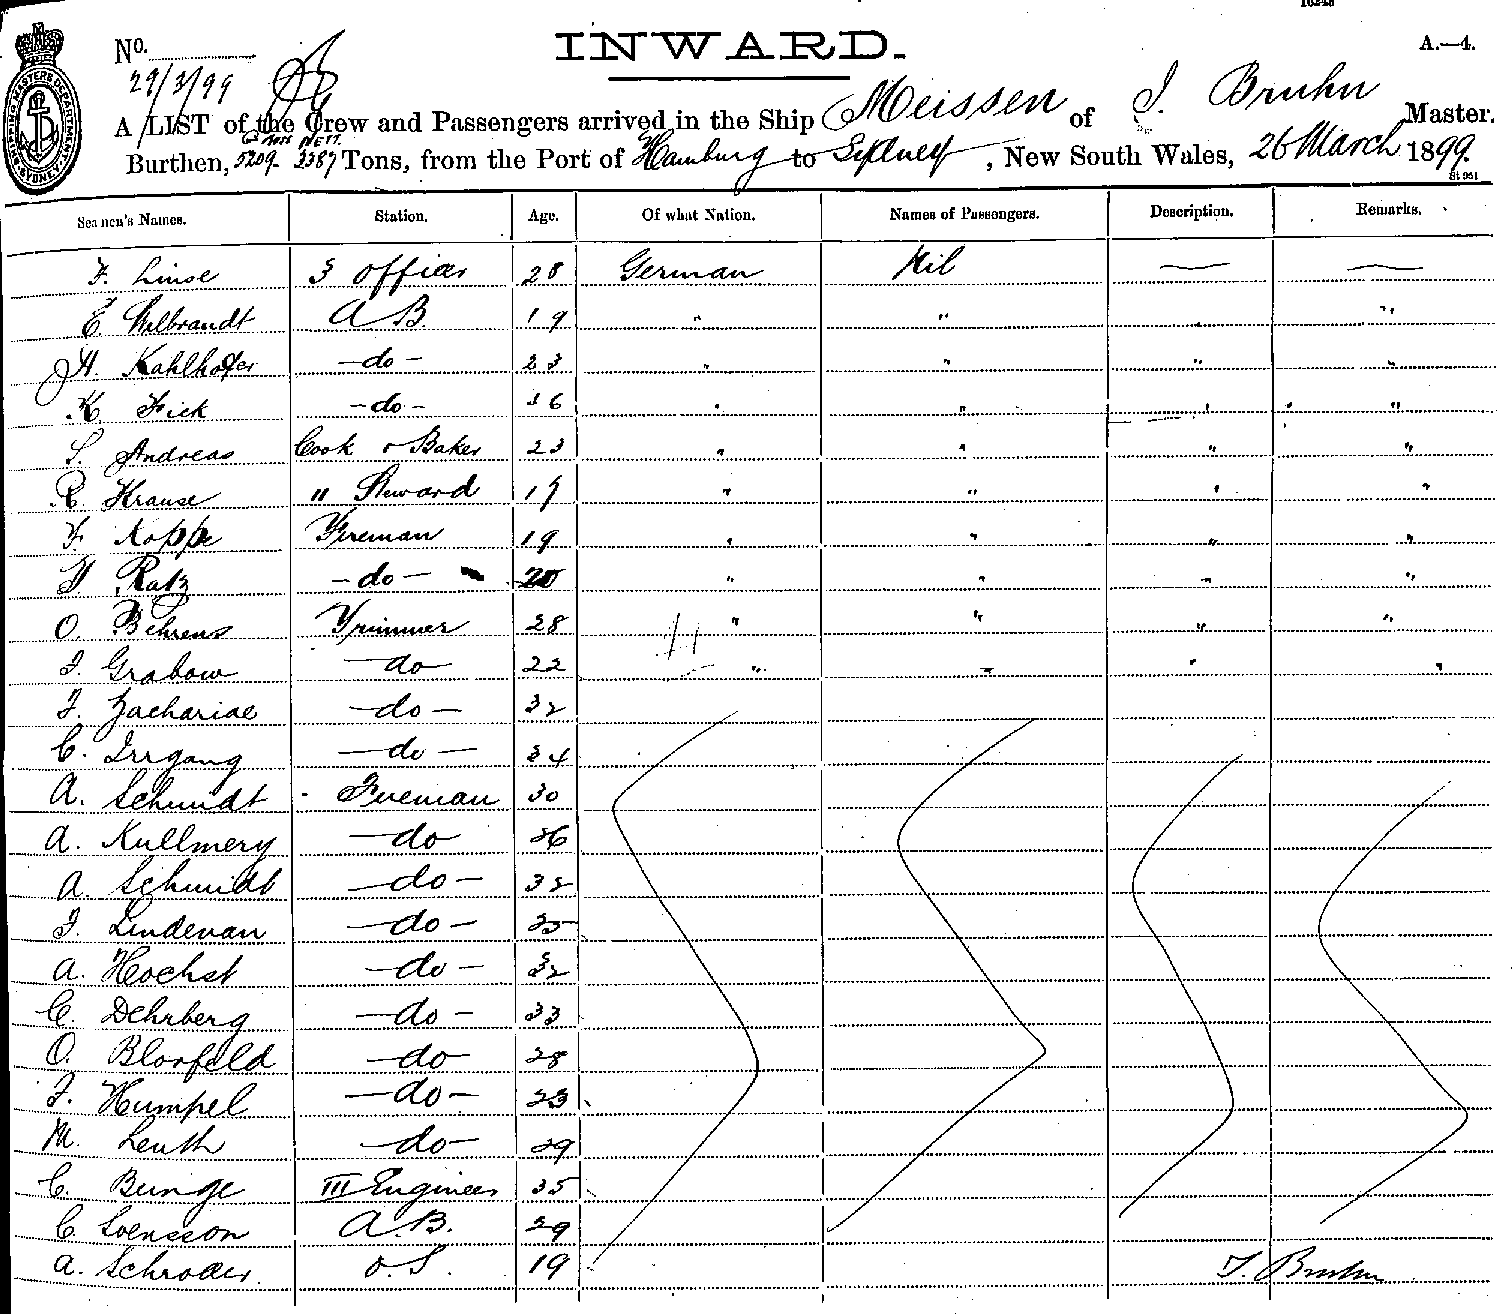 16248
INWARD.
A.—4.
No.
29/3/99
SHIPPING MASTERS DEPARTMENT SYDNEY
A LIST of the Crew and Passengers arrived in the Ship Meissen of J. Bruhn Master.
Gross Nett
Burthen, 5209 3387 Tons, from the Port of Hamburg to Sydney, New South Wales, 26 March 1899.
St 951
Seamen's Names. Station. Age. Of what Nation. Names of Passengers. Description. Remarks.
F. Linse 3 officer 28 German Nil — —
E. Wilbrandt A B. 19 " " " "
H. Kahlhofer —do— 23 " " " "
K. Fick —do— 36 " " " "
S. Andreas Cook & Baker 23 " " " "
R. Krause " Steward 19 " " " "
F. Koppe Fireman 19 " " " "
H Ratz —do— 20 " " " "
O. Behrens Trimmer 28 " " " "
F. Grabow —do 22 " " " "
F. Zachariae —do— 32
C. Irrgang —do— 34
A. Schmidt Fireman 30
A. Kullmery —do 26
A. Schmidt —do— 32
F. Lindenau —do— 25
A. Hochst —do— 32
C. Dehrberg —do— 33
O. Blorfeld —do— 28
F. Humpel —do— 23
M. Leuth —do— 29
C. Bunge III Engineer 35
C. Svensson A.B. 29
A. Schroder. O.S. 19 J. Bruhn